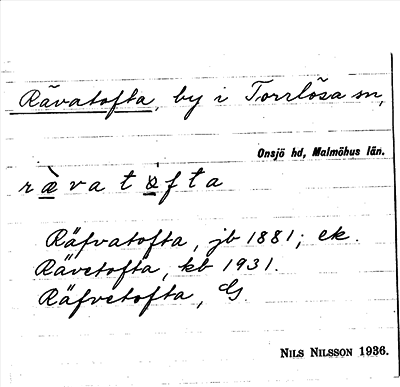 Rävatofta, by i Torrlösa sn,
Onsjö hd, Malmöhus län.
r æ̀ v a t ò f t a
Räfvatofta, jb 1881; ek.
Rävetofta, kb 1931.
Räfvetofta, G
NILS NILSSON 1936.